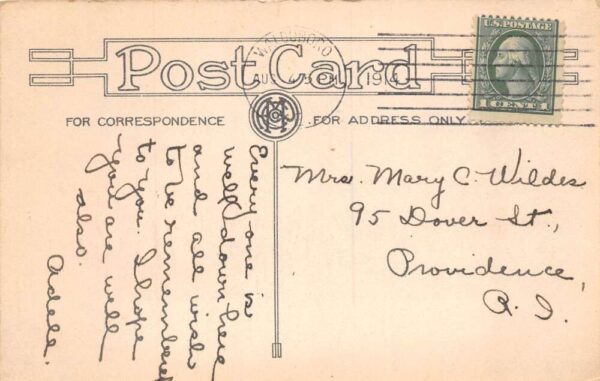 Post Card
WALDOBORO
AUG
1914
U.S. POSTAGE
FOR CORRESPONDENCE
FOR ADDRESS ONLY
Every one is
well down here
and all wish
to be remembered
to you. I hope
you are well
also.
Adell.
Mrs. Mary C. Wildes
95 Dover St.,
Providence,
R. I.